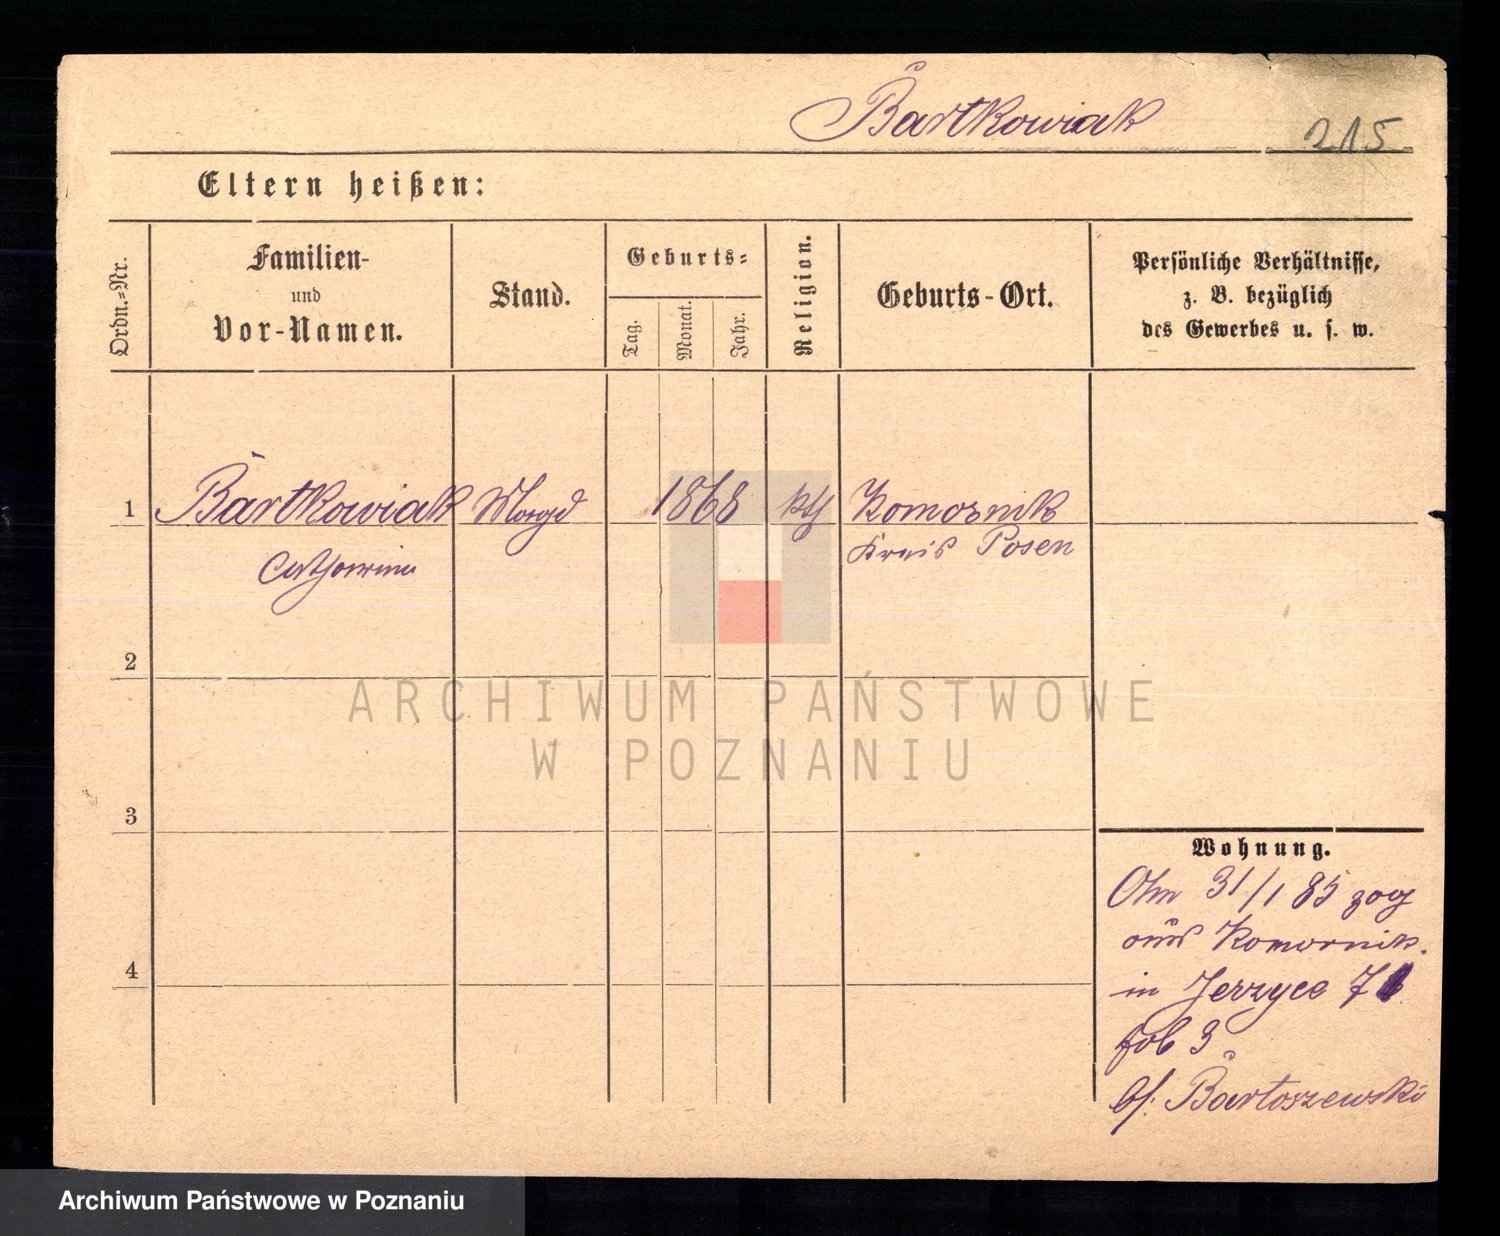 Bartkowiak
215
Eltern heißen:
Ordn.=Nr.
Familien-
und
Vor-Namen.
Stand.
Geburts=
Tag.
Monat.
Jahr.
Religion.
Geburts-Ort.
Persönliche Verhältnisse,
z. B. bezüglich
des Gewerbes u. s. w.
1 Bartkowiak Magd 1868 kth Komornik
Catharina Kreis Posen
2
3
4
Wohnung.
Am 31/1 85 zog
aus Komornik.
in Jerzyce 7
feb 3
b/. Bartoszewski
ARCHIWUM PAŃSTWOWE
W POZNANIU
Archiwum Państwowe w Poznaniu